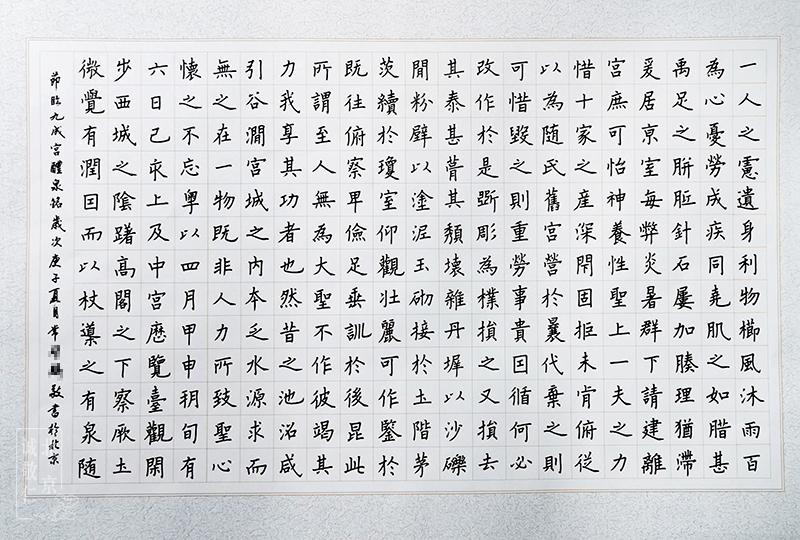 一人之憲遺身利物櫛風沐雨百
為心憂勞成疾同堯肌之如腊甚
禹足之胼胝針石屢加腠理猶滯
爰居京室每弊炎暑群下請建離
宮庶可怡神養性聖上一夫之力
惜十家之産深閇固拒未肯俯從
以為随氏舊宮營於曩代棄之則
可惜毀之則重勞事貴因循何必
改作於是斲彫為樸損之又損去
其泰甚葺其頹壞雜丹墀以沙礫
間粉壁以塗泥玉砌接於土階茅
茨續於瓊室仰觀壯麗可作鑒於
既往俯察卑儉足垂訓於後昆此
所謂至人無為大聖不作彼竭其
力我享其功者也然昔之池沼咸
引谷澗宮城之内本乏水源求而
無之在一物既非人力所致聖心
懷之不忘粵以四月甲申朔旬有
六日己亥上及中宮歷覽臺觀閑
步西城之陰躊高閣之下察厥土
微覺有潤因而以杖導之有泉随
節臨九成宮醴泉銘歲次庚子夏月常敬書於北京